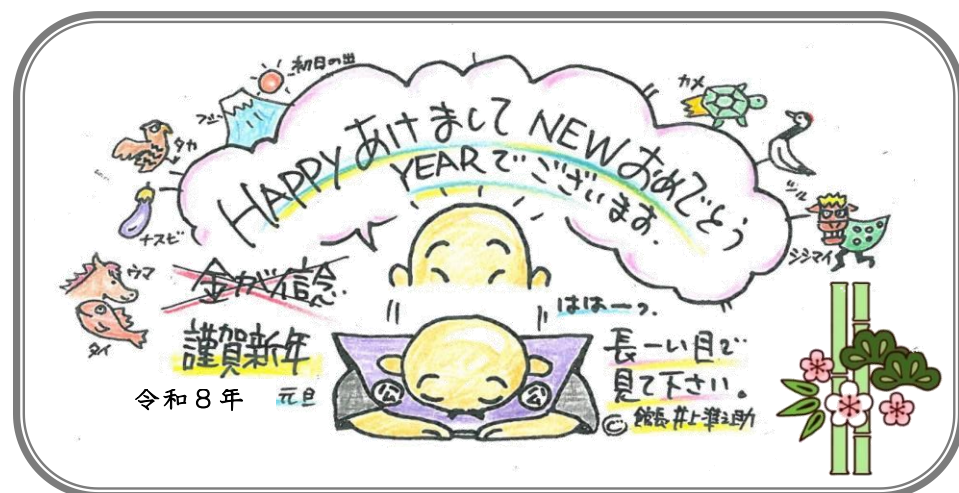 初日の出
フジ
タカ
ナスビ
ウマ
タイ
カメ
ツル
シシマイ
HAPPYあけましてNEWおめでとう
YEARでございます.
金が信念.
謹賀新年
令和8年 元旦
ははーっ.
長ーい目で
見て下さい。
公 公
© 館長 井上